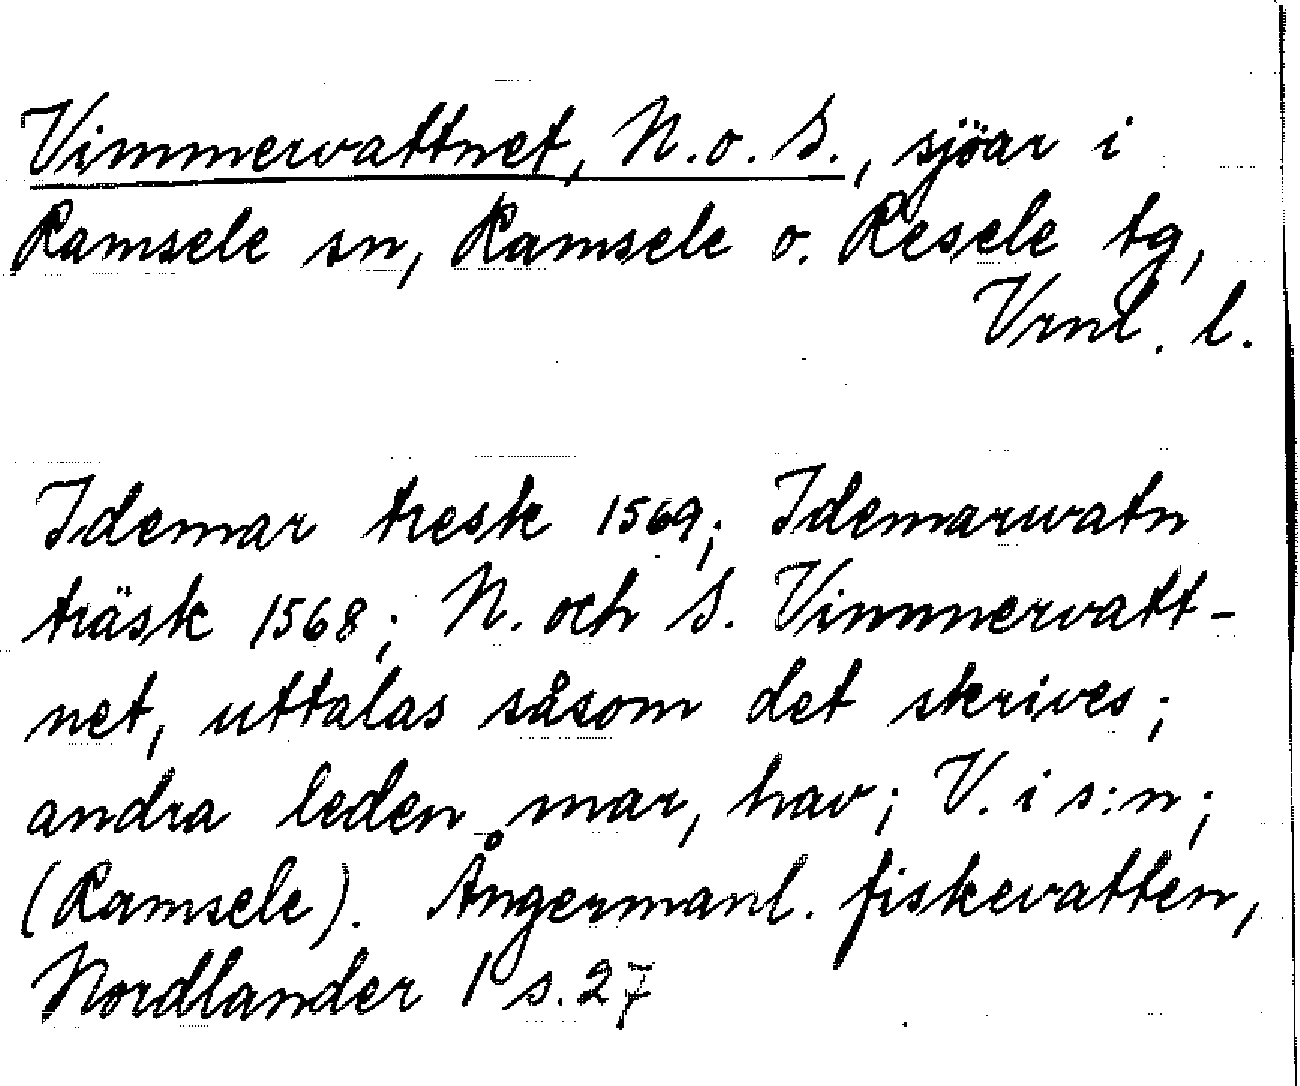 Vimmervattnet, N. o. S., sjöar i
Ramsele sn, Ramsele o. Resele tg,
Vrnl. l.
Idemar tresk 1569; Idemarwatn
träsk 1568; N. och S. Vimmervatt-
net, uttalas såsom det skrives;
andra leden mar, hav; V. i s:n;
(Ramsele). Ångermanl. fiskevatten,
Nordlander 1 s. 27